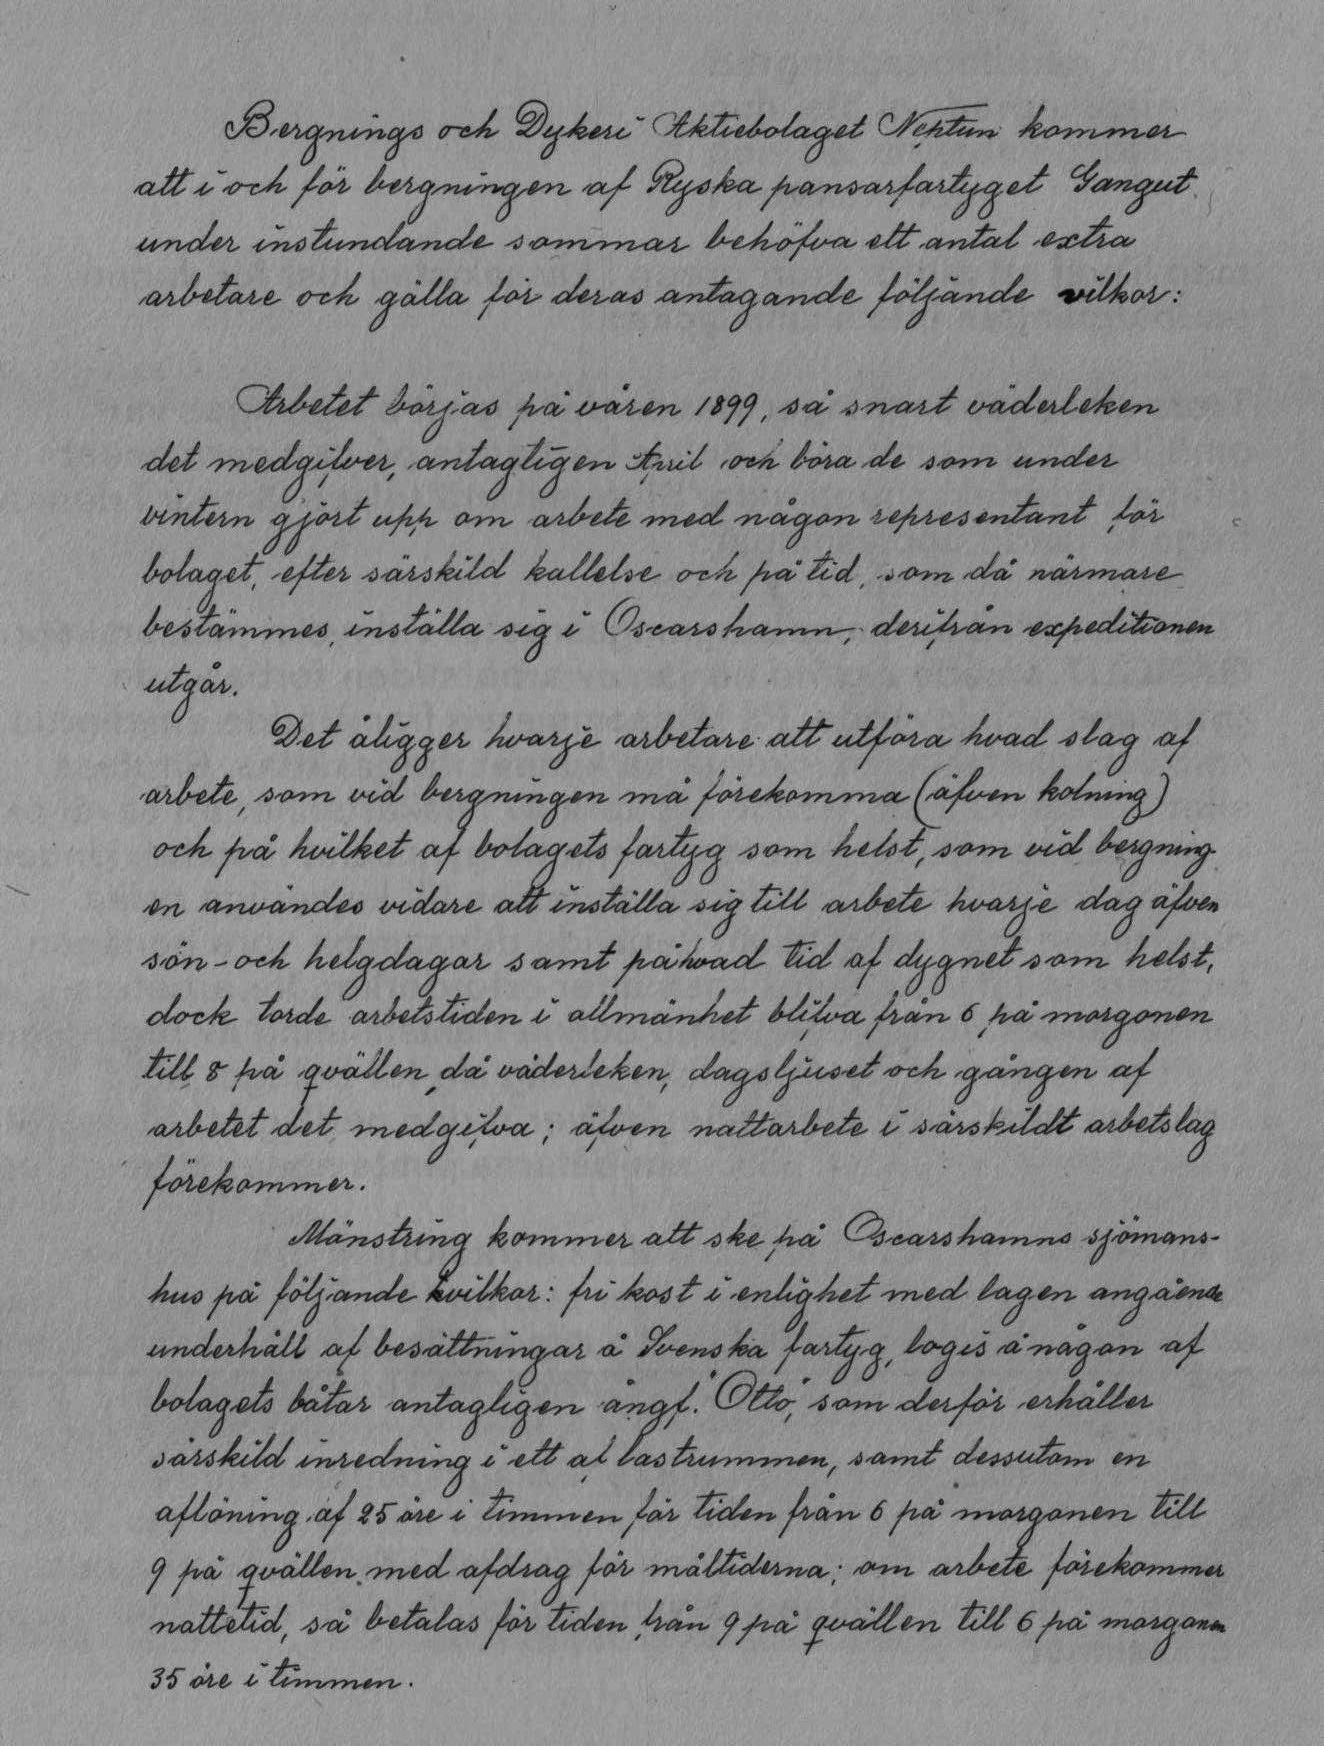 Bergnings och Dykeri Aktiebolaget Neptun kommer
att i och för bergningen af Ryska pansarfartyget Gangut
under instundande sommar behöfva ett antal extra
arbetare och gälla för deras antagande följande vilkor:
Arbetet börjas på våren 1899, så snart väderleken
det medgifver, antagligen April och böra de som under
vintern gjört upp om arbete med någon representant för
bolaget, efter särskild kallelse och på tid, som då närmare
bestämmes, inställa sig i Oscarshamn, derifrån expeditionen
utgår.
Det åligger hvarje arbetare att utföra hvad slag af
arbete, som vid bergningen må förekomma (äfven kolning)
och på hvilket af bolagets fartyg som helst, som vid bergning
en användes vidare att inställa sig till arbete hvarje dag äfven
sön- och helgdagar samt på hvad tid af dygnet som helst,
dock torde arbetstiden i allmänhet blifva från 6 på morgonen
till 8 på qvällen, då väderleken, dagsljuset och gången af
arbetet det medgifva; äfven nattarbete i särskildt arbetslag
förekommer.
Mönstring kommer att ske på Oscarshamns sjömans-
hus på följande vilkor: fri kost i enlighet med lagen angående
underhåll af besättningar å Svenska fartyg, logis å någon af
bolagets båtar antagligen ångf. "Otto", som derför erhåller
särskild inredning i ett af lastrummen, samt dessutom en
aflöning af 25 öre i timmen för tiden från 6 på morgonen till
9 på qvällen med afdrag för måltiderna; om arbete förekommer
nattetid, så betalas för tiden från 9 på qvällen till 6 på morgonen
35 öre i timmen.